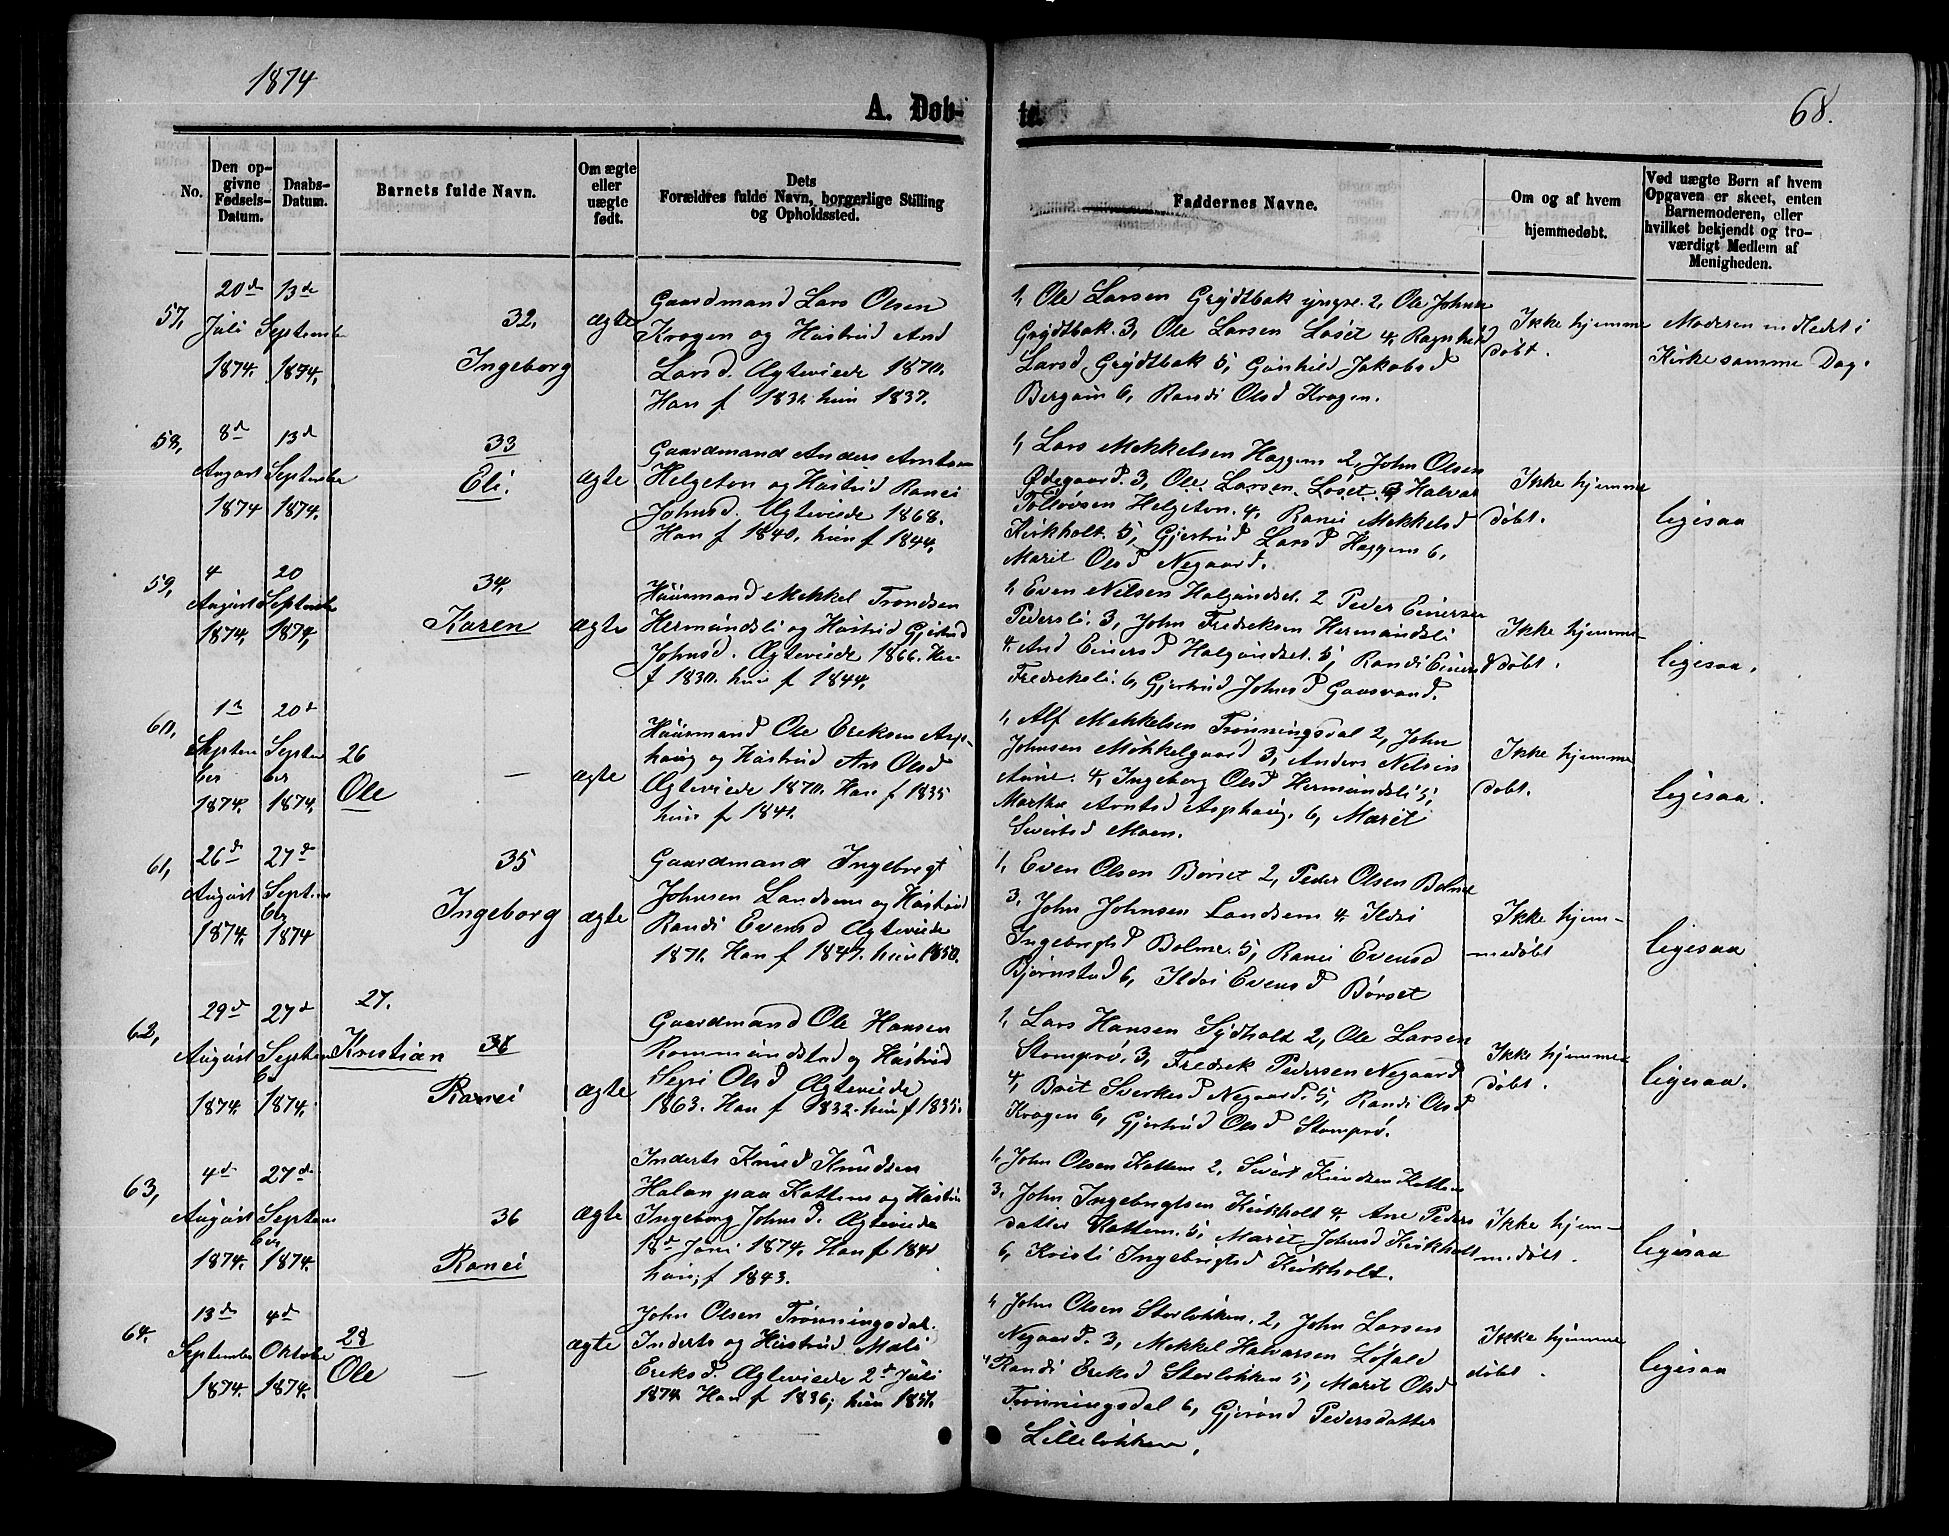 1874
68.
A. Døb-
te.
No.
Den op-
givne
Fødsels-
Datum.
Daabs-
Datum.
Barnets fulde Navn.
Om ægte
eller
uægte
født.
Dets
Forældres fulde Navn, borgerlige Stilling
og Opholdssted.
Faddernes Navne.
Om og af hvem
hjemmedøbt.
Ved uægte Børn af hvem
Opgaven er skeet, enten
Barnemoderen, eller
hvilket bekjendt og tro-
værdigt Medlem af
Menigheden.
57,
20de
Juli
1874.
13de
September
1874,
32,
Ingeborg
ægte
Gaardmand Lars Olsen
Krogen og Hustrud And
Larsd. Ægteviede 1870.
Han f 1832 hun 1837.
1, Ole Larsen Grydtbak yngre. 2, Ole Johns
Grydtbak. 3, Ole Larsen Løset 4, Ragnhild
Larsd. Grydtbak 5, Gunhild Jakobsd
6, Randi Olsd Krogen.
Ikke hjemme
døbt.
Moderen indledet i
Kirke samme Dag.
58,
8de
August
1874
13de
September
1874.
33
Eli.
ægte
Gaardmand Anders Arntsen
Helgeton og Hustrud Ranei
Johnsd. Ægteviede 1868.
Han f 1840, hun f 1844,
1, Lars Mekkelsen Haggen 2, John Olsen
Ødegaard. 3, Ole Larsen Løset Halvar
Helgeton. 4, Ranei Mekkelsd
Kirkholt. 5, Gjertrud Larsd Haggen 6,
Marit Olsd Negaard.
Ikke hjemme
døbt.
ligesaa
59,
4
August
1874.
20
September
1874,
34,
Karen
ægte
Huusmand Mekkel Trondsen
Hermundsli og Hustrud Gjertrud
Johnsd. Ægteviede 1866. Han
f 1830. hun f 1844.
1, Even Nilsen Halgundset. 2 Peder Einersen
Pedersli. 3, John Fredreksen Hermundsli
4. And Einersd Halgundset. 5, Randi Einersd
Fredreksli. 6, Gjertrud Johnsd Gaasvand.
Ikke hjemme-
døbt.
ligesaa.
60,
1ste
Septem
ber
1874.
20de
Septem
ber
1874.
26
Ole
—
ægte
Huusmand Ole Ereksen Asp-
haug og Hustrud An Olsd
Ægteviede 1870. Han f 1835
hun f 1841.
1, Alf Mekkelsen Trønningsdal 2, John
Johnsen Mekkelgaard 3, Anders Nilsen
Aune. 4, Ingeborg Olsd Hermundsli 5,
Martha Arntsd Asphaug. 6, Marit
Sivertsd Moen.
Ikke hjemme
døbt.
ligesaa.
61,
26de
August
1874.
27de
Septem
ber
1874
35
Ingeborg
ægte
Gaardmand Ingebrigt
Johnsen Landsem og Hustrud
Randi Evensd Ægteviede
1871. Han f 1847. hun 1850.
1, Even Olsen Børset 2, Peder Olsen Bolme
3, John Johnsen Landsem 4, Ildri
Ingebrigtsd Bolme. 5, Ranei Evensd
Bjørnstad 6, Ildri Evensd Børset
Ikke hjem-
medøbt
ligesaa
62,
29de
August
1874.
27de
Septem
ber
1874.
27.
Kristian
Ranei
ægte
Gaardmand Ole Hansen
Rommundstad og Hustrud
Segri Olsd Ægteviede
1863. Han f 1832. hun f 1835.
1, Lars Hansen Sydholt 2, Ole Larsen
Stomprø. 3, Fredrek Pedersen Negaard
4, Brit Sverkesd Negaard. 5, Randi Olsd
Krogen 6, Gjertrud Olsd Stomprø.
Ikke hjemme
døbt.
ligesaa.
63,
4de
August
1874.
27de
Septem
ber
1874.
36
Ranei
ægte
Inderts Knud Knudsen
Halan paa Kattem og Hustru
Ingeborg Johnsd. Ægteviede
18de Juni 1874. Han f 1841
hun f 1843.
1, John Olsen Kattem 2, Sivert Knudsen Kattem
3, John Ingebrigtsen Kirkholt 4, Ane Peders
datter Kattem. 5, Marit Johnsd Kirkholt
6, Kristi Ingebrigtsd Kirkholt.
Ikke hjem-
medøbt.
ligesaa
64.
13de
September
1874.
4de
Oktober
1874.
28
Ole
—
ægte
John Olsen Trønningsdal.
Inderts og Hustrud Mali
Ereksd. Ægteviede 2de Juli
1874. Han f 1836, hun 1851.
1, John Olsen Storløkken. 2, John Larsen
Negaard. 3, Mekkel Halvarsen Løfald
4, Randi Ereksd Storløkken 5, Marit Olsd
Trønningsdal 6, Gjørond Pedersdatter
Lilleløkken,
Ikke hjemme
døbt.
ligesaa